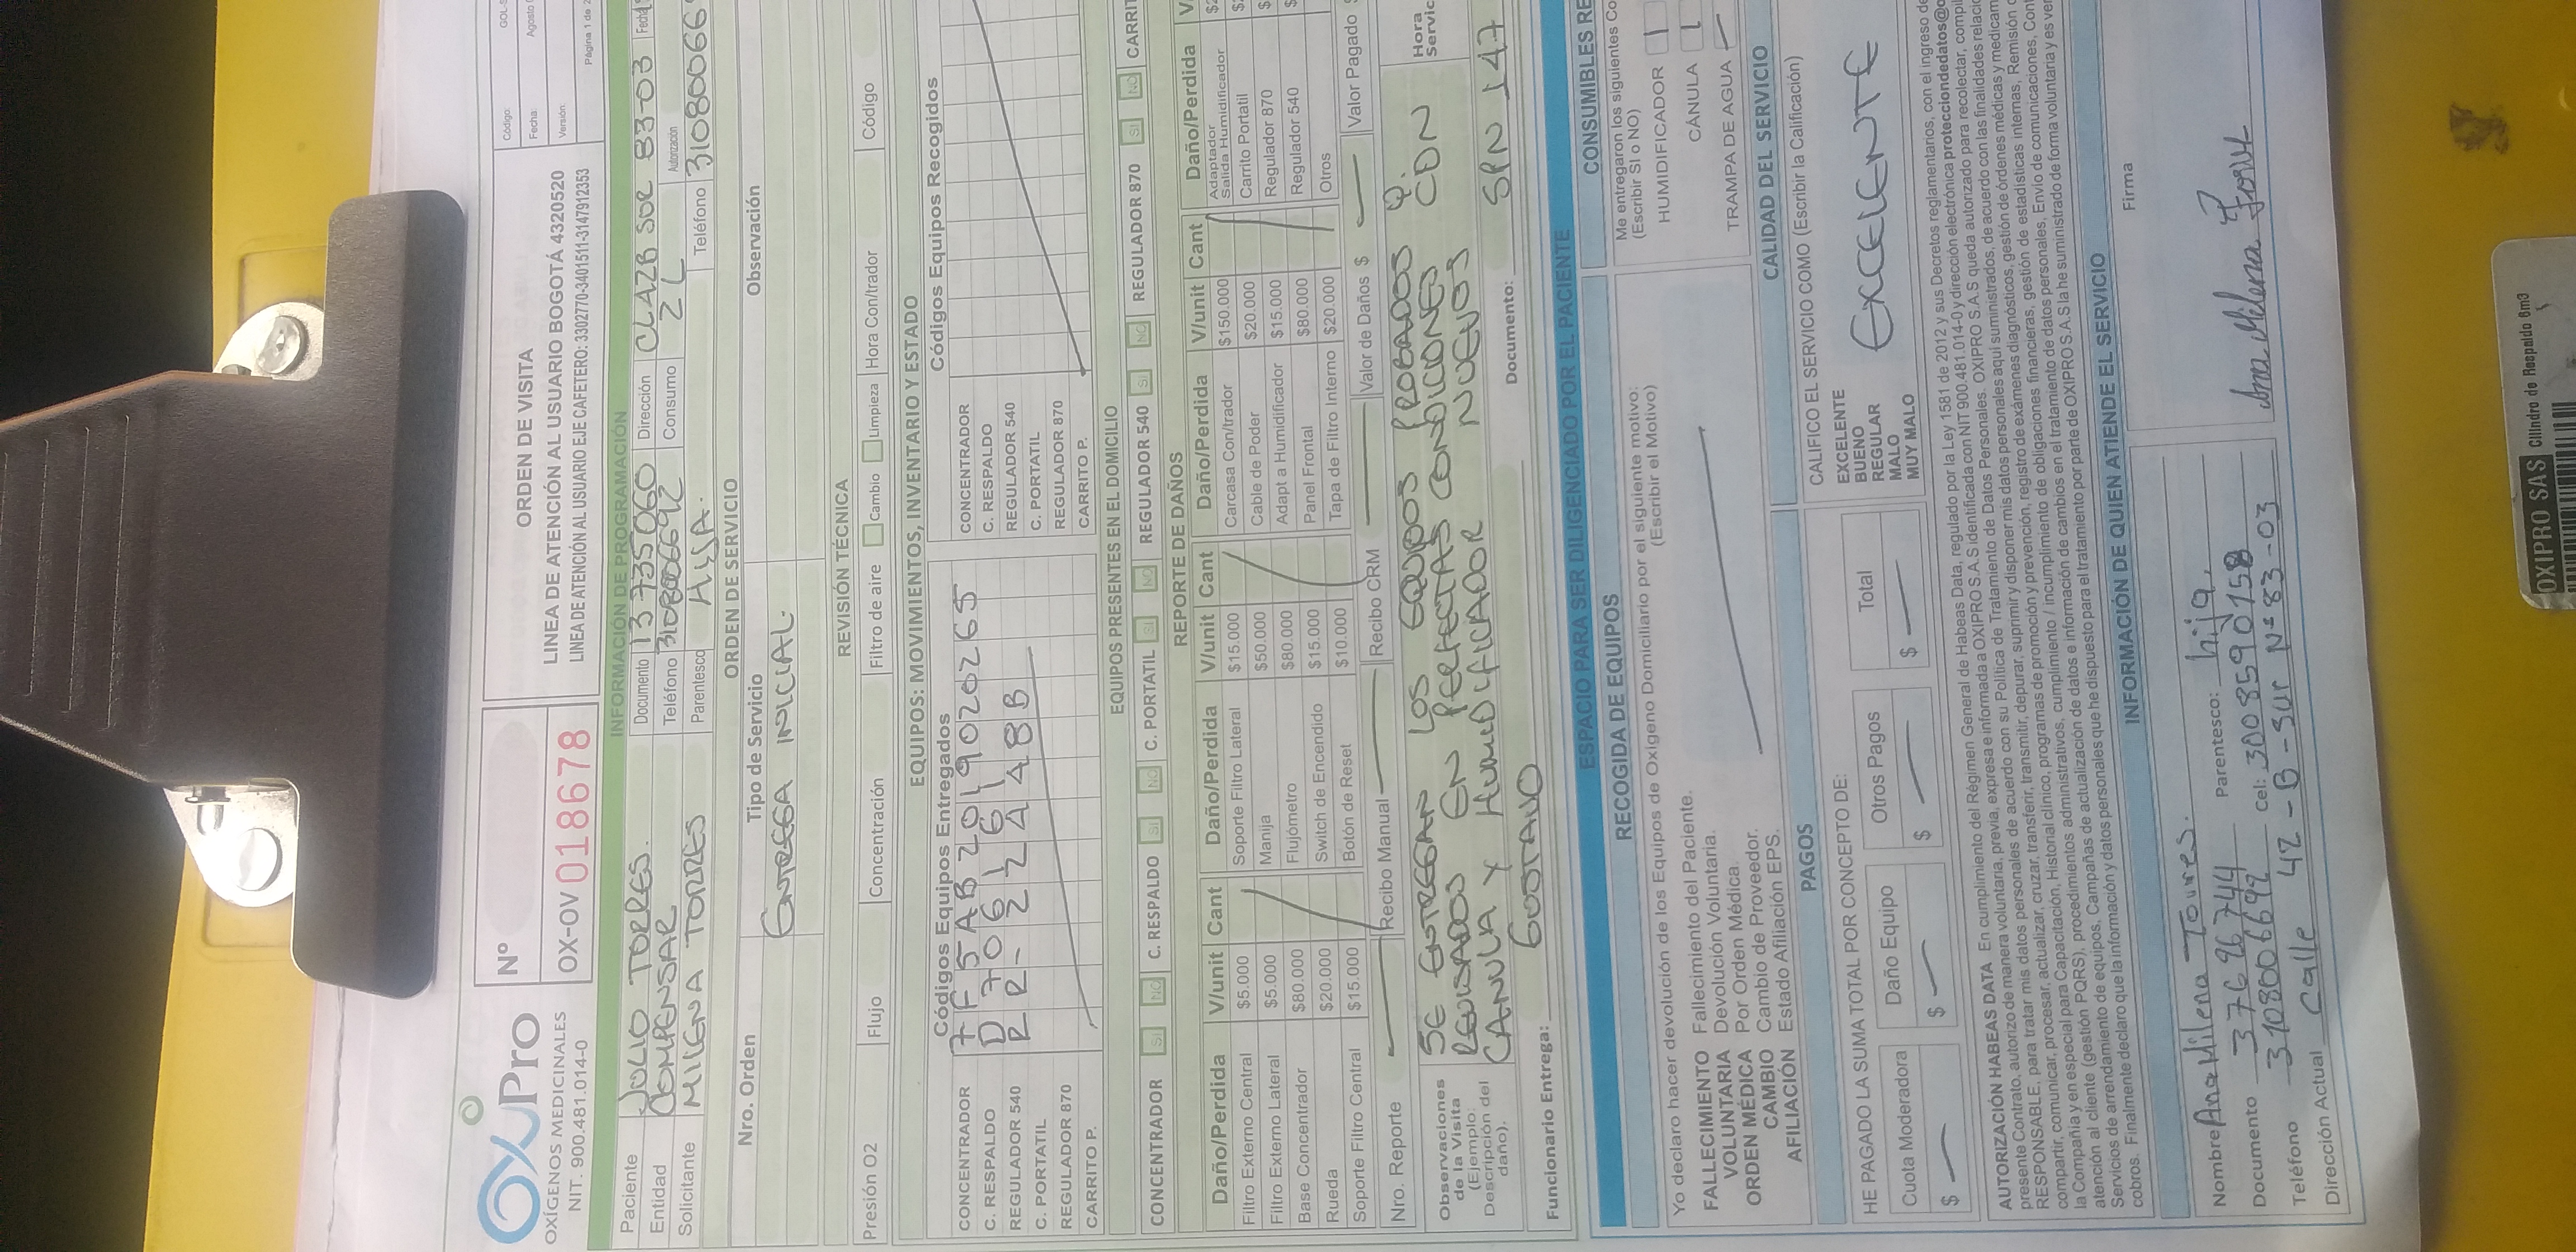 OXiPro
OXÍGENOS MEDICINALES
NIT. 900.481.014-0
Nº
OX-OV 018678
ORDEN DE VISITA
LINEA DE ATENCIÓN AL USUARIO BOGOTÁ 4320520
LINEA DE ATENCIÓN AL USUARIO EJE CAFETERO: 3302770-3401511-3147912353
Código:
Fecha:
Versión:
Página 1 de 2
INFORMACIÓN DE PROGRAMACIÓN
Paciente JULIO TORRES. Documento 13735060 Dirección CL 42B SUR 83-03
Entidad COMPENSAR Teléfono 3108006692 Consumo 2 L Autorización
Solicitante MILENA TORRES Parentesco HIJA. Teléfono 31080066
ORDEN DE SERVICIO
Nro. Orden Tipo de Servicio Observación
ENTREGA INICIAL.
REVISIÓN TÉCNICA
Presión O2 Flujo Concentración Filtro de aire Cambio Limpieza Hora Con/trador Código
EQUIPOS: MOVIMIENTOS, INVENTARIO Y ESTADO
Códigos Equipos Entregados Códigos Equipos Recogidos
CONCENTRADOR 7F5AB20190202265 CONCENTRADOR
C. RESPALDO D70616 C. RESPALDO
REGULADOR 540 RR-22448B REGULADOR 540
C. PORTATIL C. PORTATIL
REGULADOR 870 REGULADOR 870
CARRITO P. CARRITO P.
EQUIPOS PRESENTES EN EL DOMICILIO
CONCENTRADOR SI NO C. RESPALDO SI NO C. PORTATIL SI NO REGULADOR 540 SI NO REGULADOR 870 SI NO CARRIT
REPORTE DE DAÑOS
Daño/Perdida V/unit Cant Daño/Perdida V/unit Cant Daño/Perdida V/unit Cant Daño/Perdida
Filtro Externo Central $5.000 Soporte Filtro Lateral $15.000 Carcasa Con/trador $150.000 Adaptador Salida Humidificador
Filtro Externo Lateral $5.000 Manija $50.000 Cable de Poder $20.000 Carrito Portatil
Base Concentrador $80.000 Flujómetro $80.000 Adapt a Humidificador $15.000 Regulador 870
Rueda $20.000 Switch de Encendido $15.000 Panel Frontal $80.000 Regulador 540
Soporte Filtro Central $15.000 Botón de Reset $10.000 Tapa de Filtro Interno $20.000 Otros
Nro. Reporte Recibo Manual Recibo CRM Valor de Daños $ Valor Pagado $
Observaciones de la Visita (Ejemplo: Descripción del daño).
SE ENTREGAN LOS EQUIPOS PROBADOS Y.
REVISADOS EN PERFECTAS CONDICIONES CON
CANULA Y HUMIDIFICADOR NUEVOS
Hora Servic
Funcionario Entrega: GUSTAVO Documento:
ESPACIO PARA SER DILIGENCIADO POR EL PACIENTE
RECOGIDA DE EQUIPOS
Yo declaro hacer devolución de los Equipos de Oxígeno Domiciliario por el siguiente motivo:
(Escribir el Motivo)
FALLECIMIENTO Fallecimiento del Paciente.
VOLUNTARIA Devolución Voluntaria.
ORDEN MÉDICA Por Orden Médica
CAMBIO Cambio de Proveedor.
AFILIACIÓN Estado Afiliación EPS.
CONSUMIBLES RE
Me entregaron los siguientes Co
(Escribir SI o NO)
HUMIDIFICADOR
CÁNULA
TRAMPA DE AGUA
PAGOS
HE PAGADO LA SUMA TOTAL POR CONCEPTO DE:
Cuota Moderadora Daño Equipo Otros Pagos Total
$ $ $ $
CALIDAD DEL SERVICIO
CALIFICO EL SERVICIO COMO (Escribir la Calificación)
EXCELENTE
BUENO
REGULAR
MALO
MUY MALO
EXCELENTE
AUTORIZACIÓN HABEAS DATA. En cumplimiento del Régimen General de Habeas Data, regulado por la Ley 1581 de 2012 y sus Decretos reglamentarios, con el ingreso de
presente Contrato, autorizo de manera voluntaria, previa, expresa e informada a OXIPRO S.A.S identificada con NIT 900.481.014-0 y dirección electrónica protecciondedatos@o
RESPONSABLE, para tratar mis datos personales de acuerdo con su Política de Tratamiento de Datos Personales. OXIPRO S.A.S queda autorizado para recolectar, compil
compartir, comunicar, procesar, actualizar, cruzar, transferir, transmitir, depurar, suprimir y disponer mis datos personales aquí suministrados, de acuerdo con las finalidades relacio
la Compañía y en especial para Capacitación, Historial clínico, programas de promoción y prevención, registro de exámenes diagnósticos, gestión de órdenes médicas y medicam
atención al cliente (gestión PQRS), procedimientos administrativos, cumplimiento / incumplimiento de obligaciones financieras, gestión de estadísticas internas, Remisión
Servicios de arrendamiento de equipos, Campañas de actualización de datos e información de cambios en el tratamiento de datos personales, Envío de comunicaciones, Con
cobros. Finalmente declaro que la información y datos personales que he dispuesto para el tratamiento por parte de OXIPRO S.A.S la he suministrado de forma voluntaria y es ver
INFORMACIÓN DE QUIEN ATIENDE EL SERVICIO
Nombre Ana Milena Torres. Parentesco: hija
Documento 37696744 Cel: 3008590758
Teléfono 3108006692
Dirección Actual Calle 42-B-Sur Nº 83-03
Firma
Ana Milena Torres
OXIPRO SAS Cilindro de Respaldo 6m3